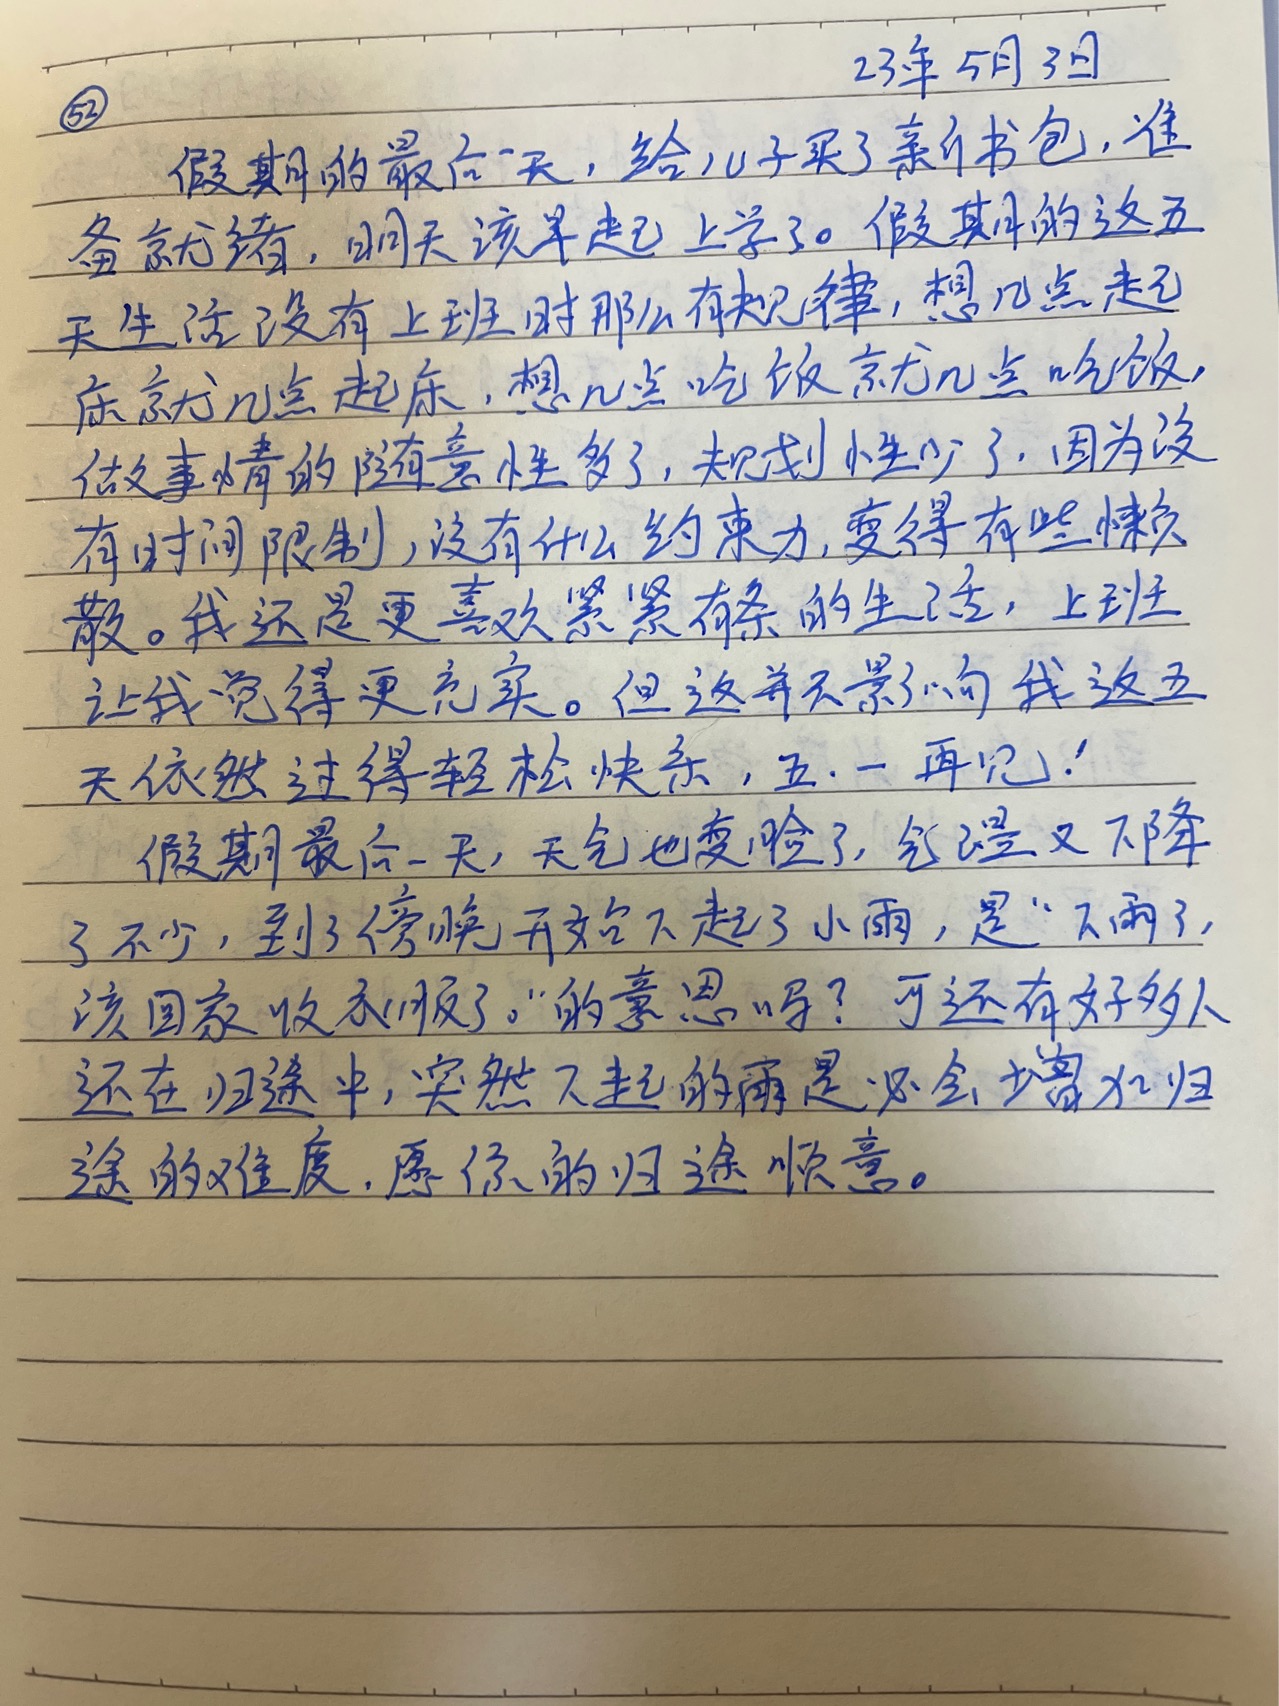 23年5月3日
52
假期的最后一天，给儿子买了新书包，准
备就绪，明天该早起上学了。假期的这五
天生活没有上班时那么有规律，想几点起
床就几点起床，想几点吃饭就几点吃饭，
做事情的随意性多了，规划性少了，因为没
有时间限制，没有什么约束力，变得有些懒
散。我还是更喜欢紧紧有条的生活，上班
让我觉得更充实。但这并不影响我这五
天依然过得轻松快乐，五.一再见！
假期最后一天，天气也变脸了，气温又下降
了不少，到了傍晚开始下起了小雨，是“下雨了，
该回家收衣服了。”的意思吗？可还有好多人
还在归途中，突然下起的雨是必会增加归
途的难度，愿你的归途顺意。